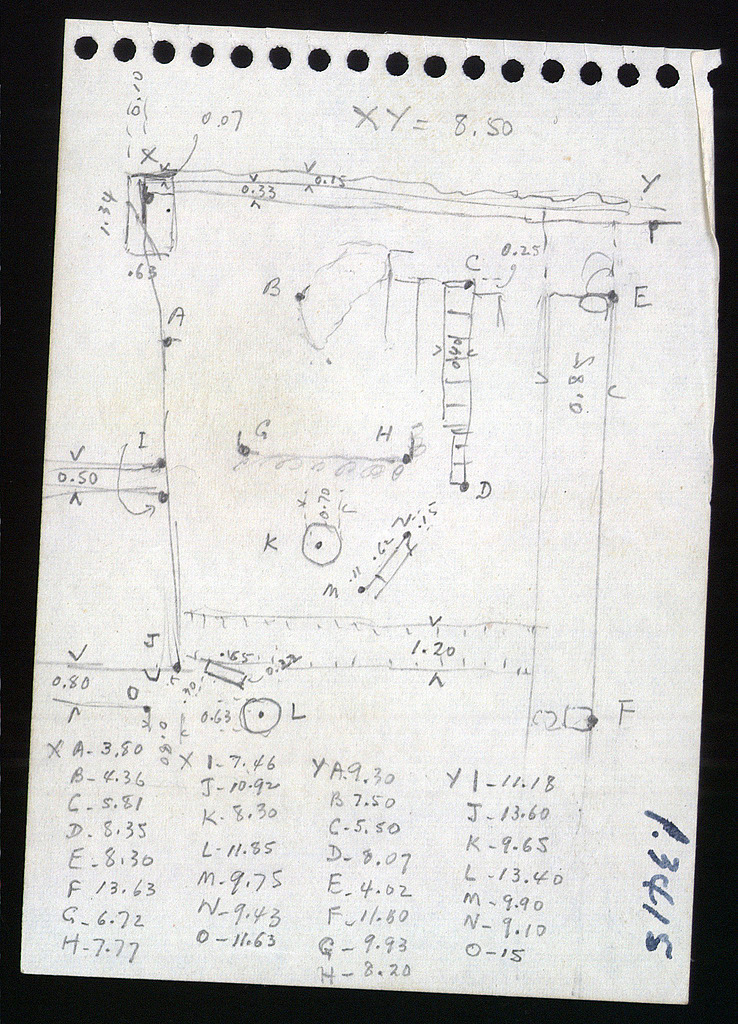 0.10
0.07
XY = 8.50
X
0.15
0.33
Y
1.34
.63
0.25
B
C
E
A
0.85
G
H
I
0.50
D
0.70
K
N
.15
.62
.11
M
J
1.20
.65
0.22
.30
0.80
O
0.63
L
F
0.80
X A-3.80
B-4.36
C-5.81
D-8.35
E-8.30
F 13.63
G-6.72
H-7.77
X I-7.46
J-10.92
K-8.30
L-11.85
M-9.75
N-9.43
O-11.63
Y A 9.30
B 7.50
C-5.50
D-8.07
E-4.02
F-11.80
G-9.93
H-8.20
Y I-11.18
J-13.60
K-9.65
L-13.40
M-9.90
N-9.10
O-15
1.3415